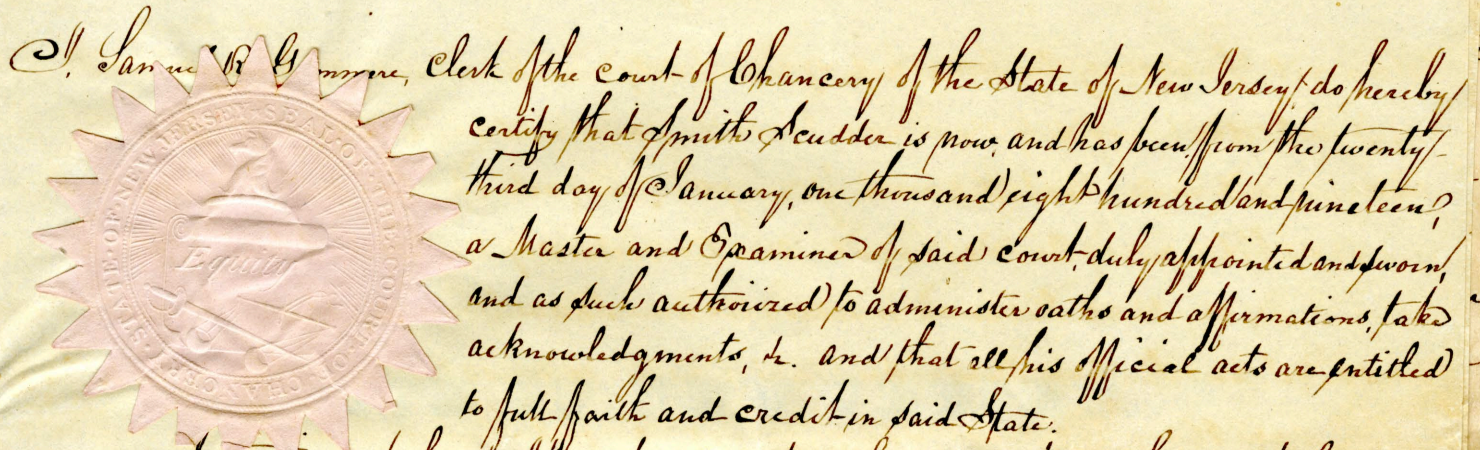 I, Samuel R. Gummere, Clerk of the court of Chancery of the State of New Jersey, do hereby
certify that Smith Scudder is now, and has been, from the twenty-
third day of January, one thousand eight hundred and nineteen,
a Master and Examiner of said court, duly appointed and sworn,
and as such authorized to administer oaths and affirmations, take
acknowledgments, &. and that all his official acts are entitled
to full faith and credit in said State.
SEAL OF THE COURT OF CHANCERY STATE OF NEW JERSEY
Equity